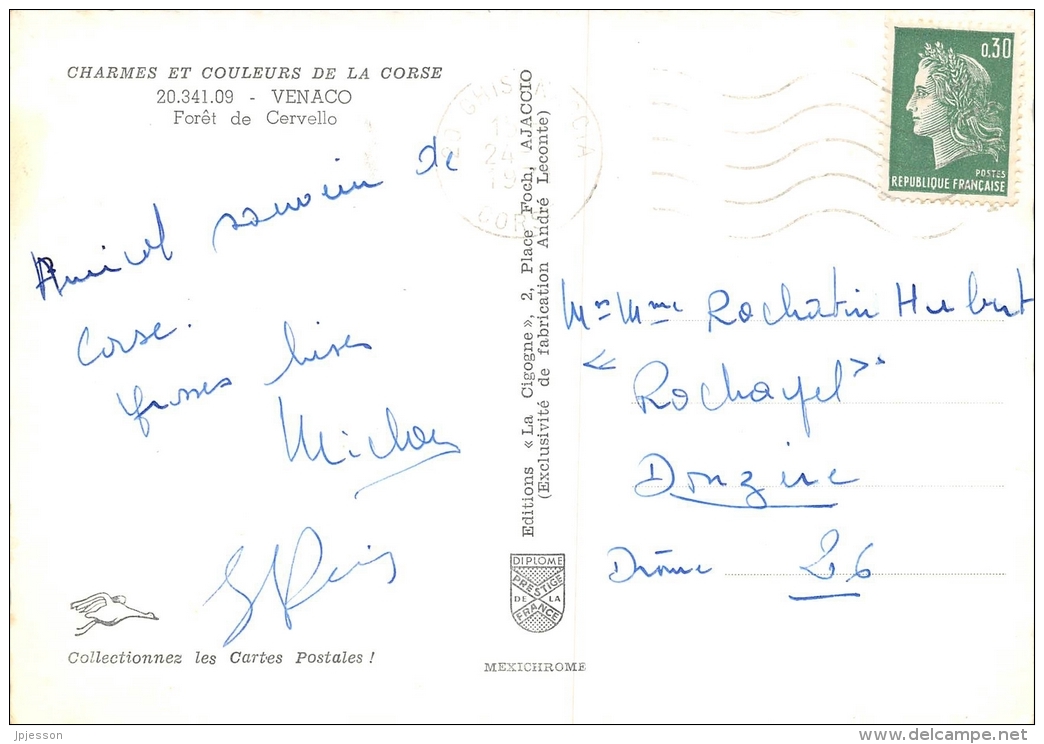 CHARMES ET COULEURS DE LA CORSE
20.341.09 - VENACO
Forêt de Cervello
Amical souvenir de
Corse.
grosses bises
Editions « La Cigogne », 2, Place Foch, AJACCIO
(Exclusivité de fabrication André Leconte)
DIPLOME
PRESTIGE
DE LA
FRANCE
MEXICHROME
Collectionnez les Cartes Postales !
0,30
POSTES
RÉPUBLIQUE FRANÇAISE
24
CORSE
Mr Mme Rochatin Hubert
« Rochayel »
Donzère
Drôme 26
jpjesson
www.delcampe.net